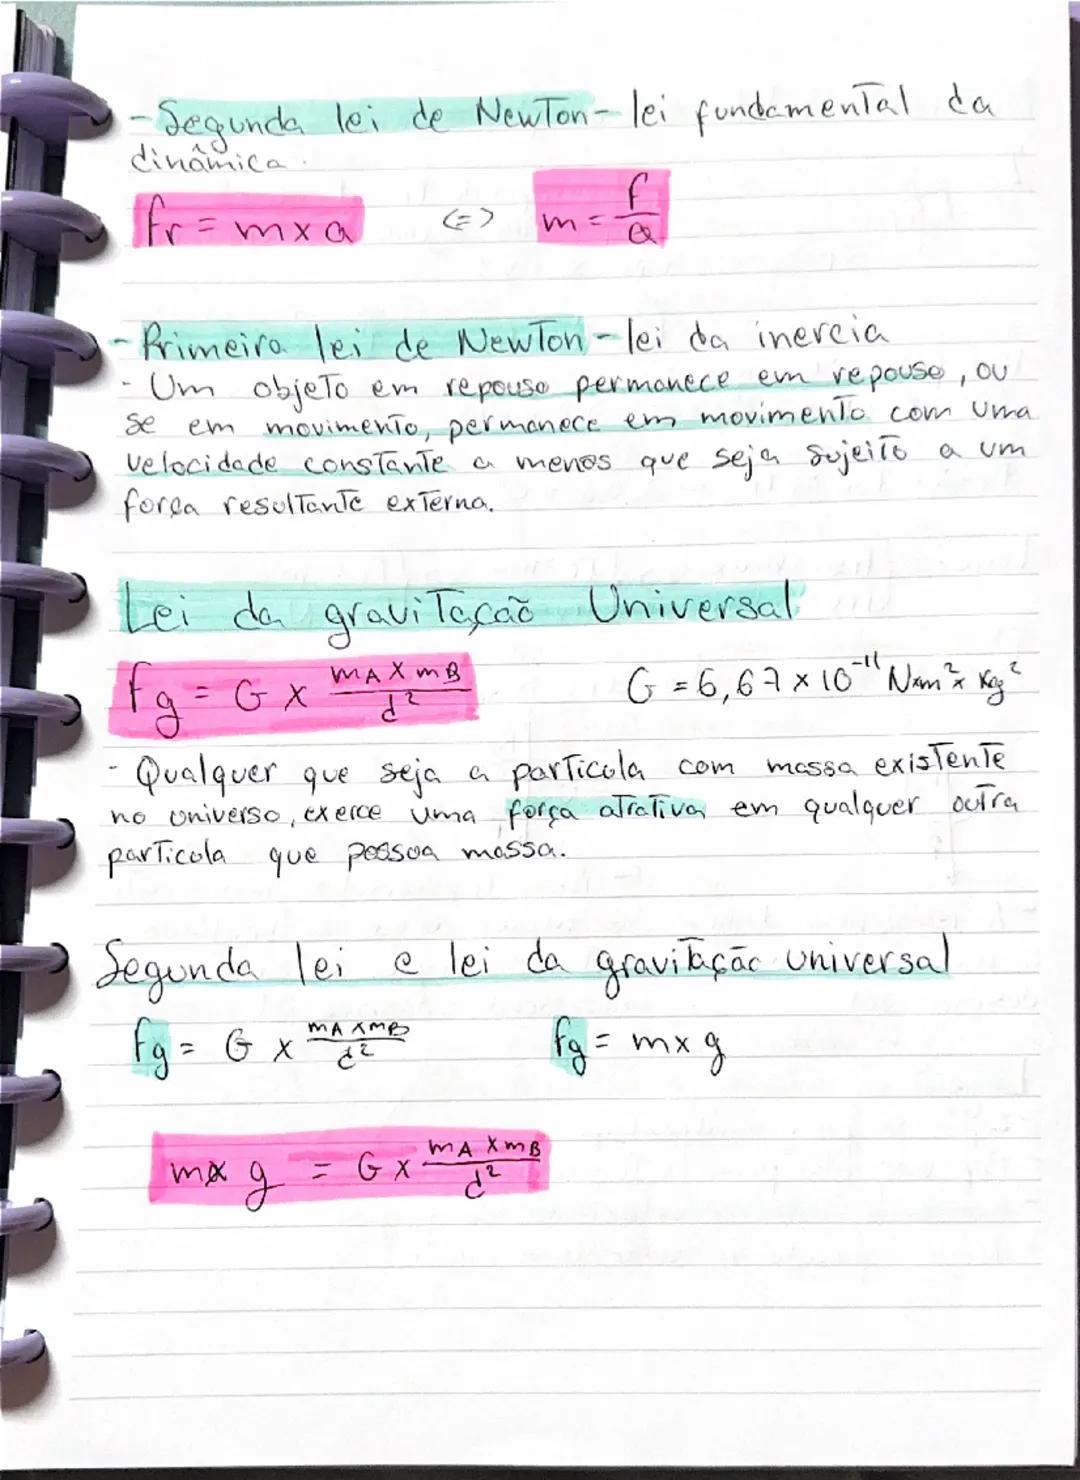 - Segunda lei de Newton - lei fundamental da
dinâmica.
fr = m x a <=> m = f/a
- Primeira lei de Newton - lei da inercia
- Um objeto em repouso permanece em repouso, ou
se em movimento, permanece em movimento com uma
velocidade constante a menos que seja sujeito a um
força resultante externa.
Lei da gravitação Universal
fg = G x mA x mB/d² G = 6,67 x 10⁻¹¹ N x m² x Kg²
- Qualquer que seja a particola com massa existente
no universo, exerce uma força atrativa em qualquer outra
particola que possua massa.
Segunda lei e lei da gravitação universal
fg = G x mA x mB/d² fg = m x g
m x g = G x mA x mB/d²